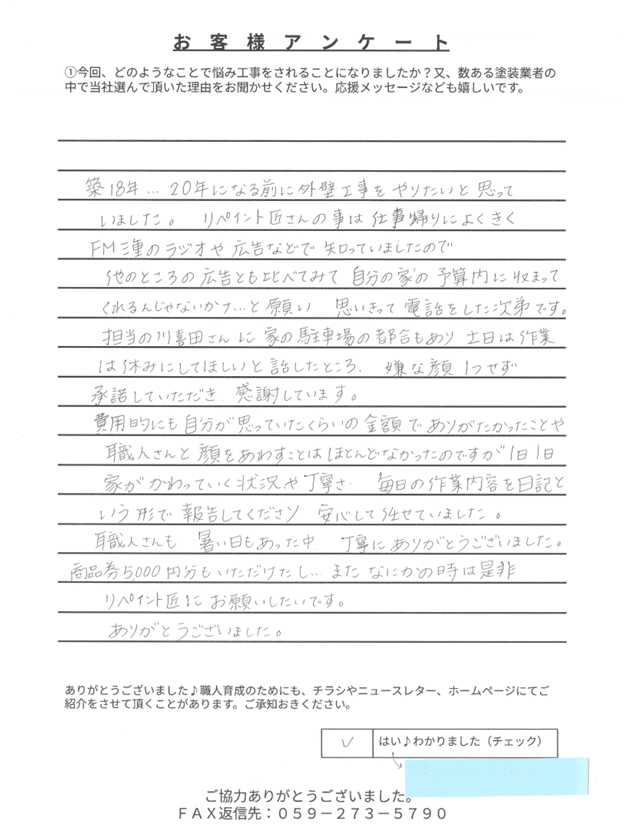 お客様アンケート
①今回、どのようなことで悩み工事をされることになりましたか？又、数ある塗装業者の
中で当社選んで頂いた理由をお聞かせください。応援メッセージなども嬉しいです。
築18年…20年になる前に外壁工事をやりたいと思って
いました。 リペイント匠さんの事は仕事帰りによくきく
FM三重のラジオや広告などで知っていましたので
他のところの広告とも比べてみて自分の家の予算内に収まって
くれるんじゃないかナ…と願い 思いきって電話をした次第です。
担当の川喜田さんに家の駐車場の都合もあり土日は作業
は休みにしてほしいと話したところ、嫌な顔1つせず
承諾していただき感謝しています。
費用的にも自分が思っていたくらいの金額でありがたかったことや
職人さんと顔をあわすことはほとんどなかったのですが1日1日
家がかわっていく状況や丁寧さ、毎日の作業内容を日記と
いう形で報告してくださり 安心して任せていました。
職人さんも暑い日もあった中、丁寧にありがとうございました。
商品券5000円分もいただけたし…またなにかの時は是非
リペイント匠にお願いしたいです。
ありがとうございました。
ありがとうございました♪職人育成のためにも、チラシやニュースレター、ホームページにてご
紹介をさせて頂くことがあります。ご承知おきください。
✓ はい♪わかりました（チェック）
ご協力ありがとうございました。
ＦＡＸ返信先：０５９－２７３－５７９０